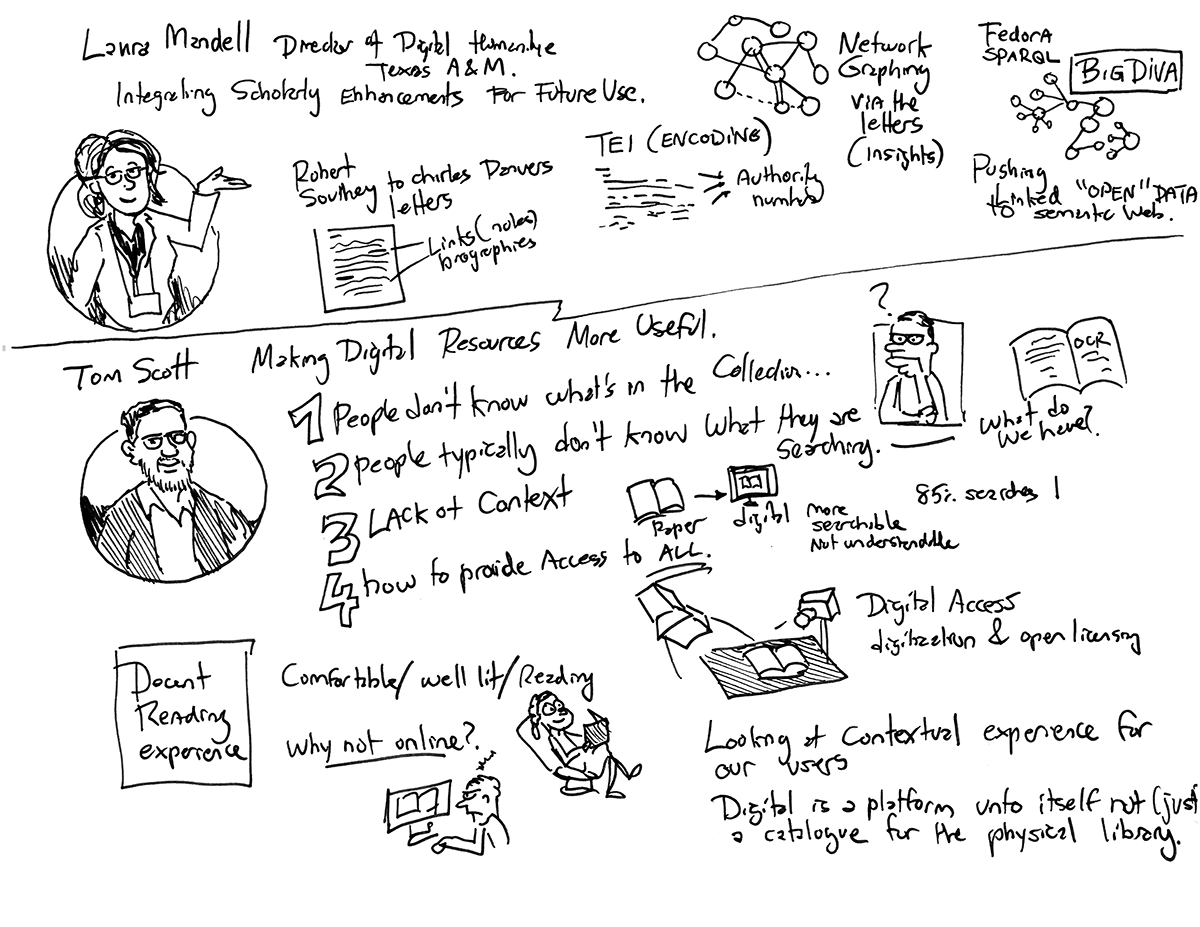 Laura Mandell Director of Digital Humanities
Texas A&M.
Integrating Scholarly Enhancements For Future Use.
Robert
Southey to Charles Danvers
letters
Links (notes)
biographies
TEI (ENCODING)
Authority
number
Network
Graphing
via the
letters
(Insights)
FedorA
SPARQL
BIGDIVA
Pushing
to linked "OPEN" DATA
semantic web.
Tom Scott
Making Digital Resources More Useful.
1 People don't know what's in the Collection...
2 People typically don't know what they are
searching.
3 LAck of Context
4 how to provide Access to ALL.
?
OCR
What do
we have?
85% searches 1
Paper
digital
more
searchable
Not understandable
Digital Access
digitization & open licensing
Decent
Reading
experience
Comfortable/ well lit/ Reading
why not online?
Looking at Contextual experience for
our users
Digital is a platform unto itself not (just
a catalogue for the physical library.